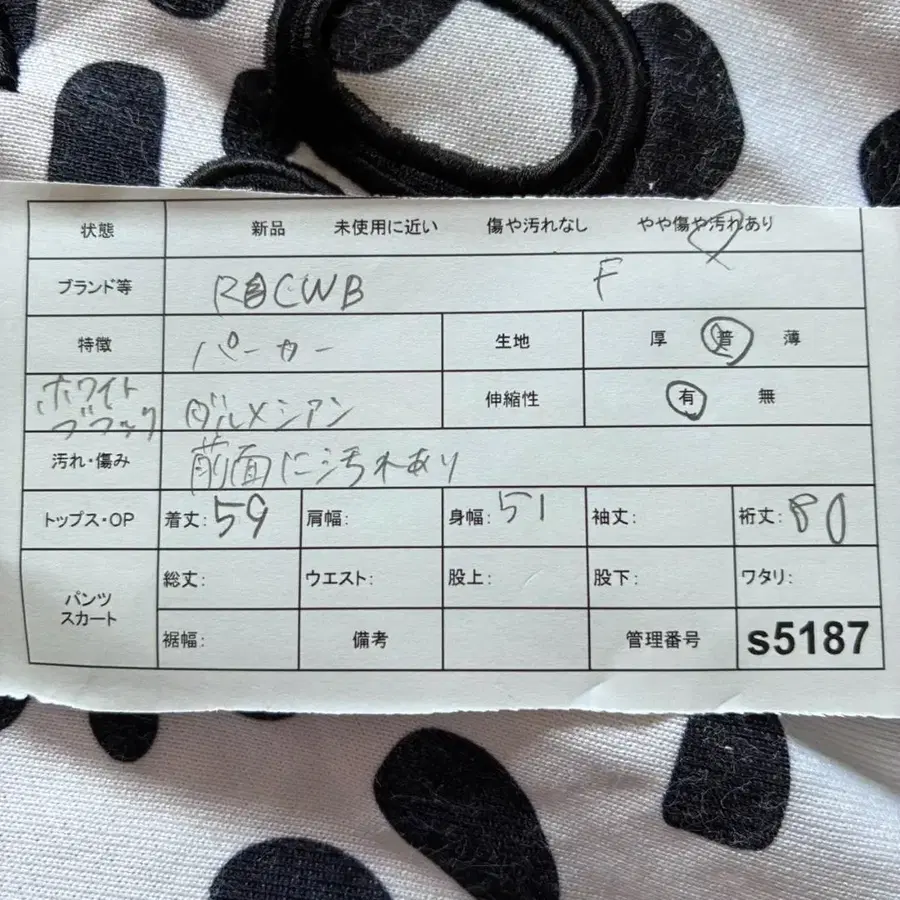 状態 新品 未使用に近い 傷や汚れなし やや傷や汚れあり
ブランド等 RCWB F
特徴 パーカー 生地 厚 普 薄
ホワイト
ブラック ダルメシアン 伸縮性 有 無
汚れ・傷み 前面に汚れあり
トップス・OP 着丈: 59 肩幅: 身幅: 51 袖丈: 裄丈: 80
パンツ
スカート
総丈: ウエスト: 股上: 股下: ワタリ:
裾幅: 備考 管理番号 s5187